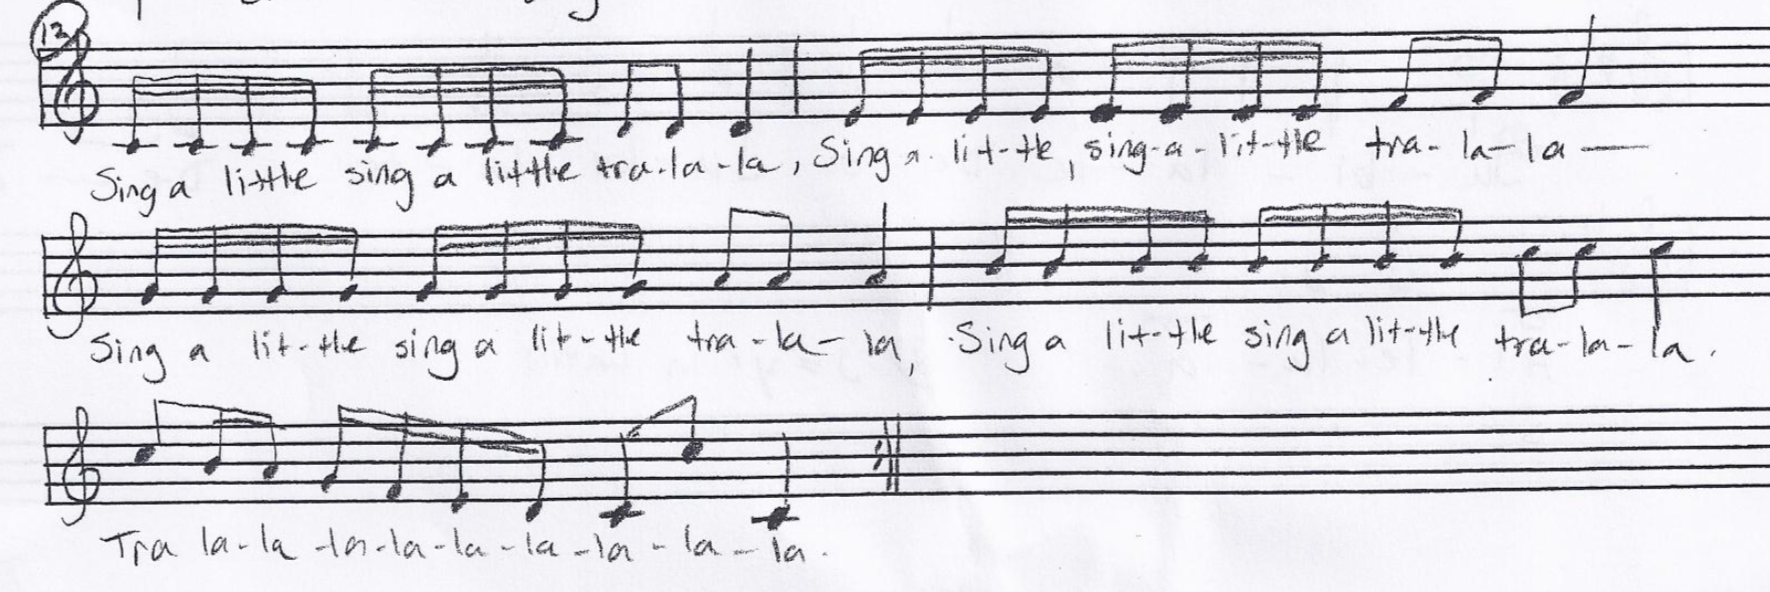 13
Sing a lit-tle sing a little tra-la-la, Sing a lit-tle, sing-a-lit-tle tra-la-la—
Sing a lit-tle sing a lit-tle tra-la-la, Sing a lit-tle sing a lit-tle tra-la-la.
Tra la-la-la-la-la-la-la-la-la.